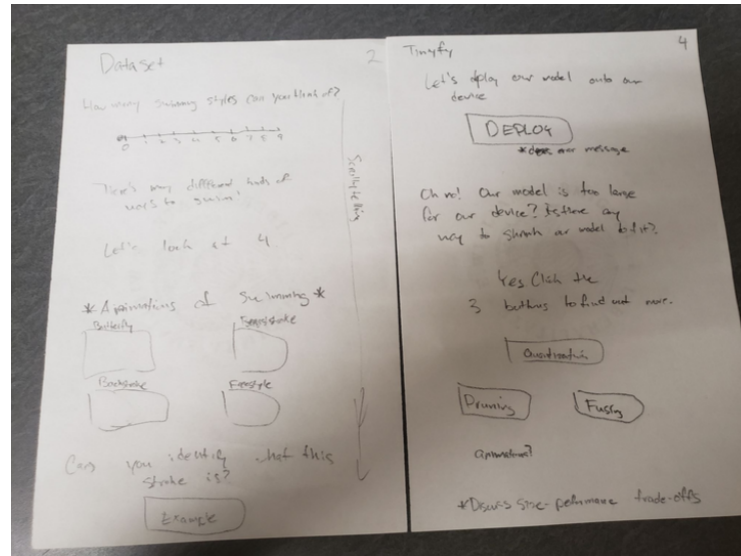 Dataset
2
How many swimming styles can you think of?
0 1 2 3 4 5 6 7 8 9
There's many different kinds of
ways to swim!
Let's look at 4
*Animations of Swimming*
Butterfly
Breaststroke
Backstroke
Freestyle
Can you identify what this
stroke is?
Example
Scrollytelling
Tinyfy
4
Let's deploy our model onto our
device
DEPLOY
error message
Oh no! Our model is too large
for our device? Is there any
way to shrink our model to fit?
Yes Click the
3 buttons to find out more.
Quantization
Pruning
Fusing
animations?
*Discuss size-performance trade-offs